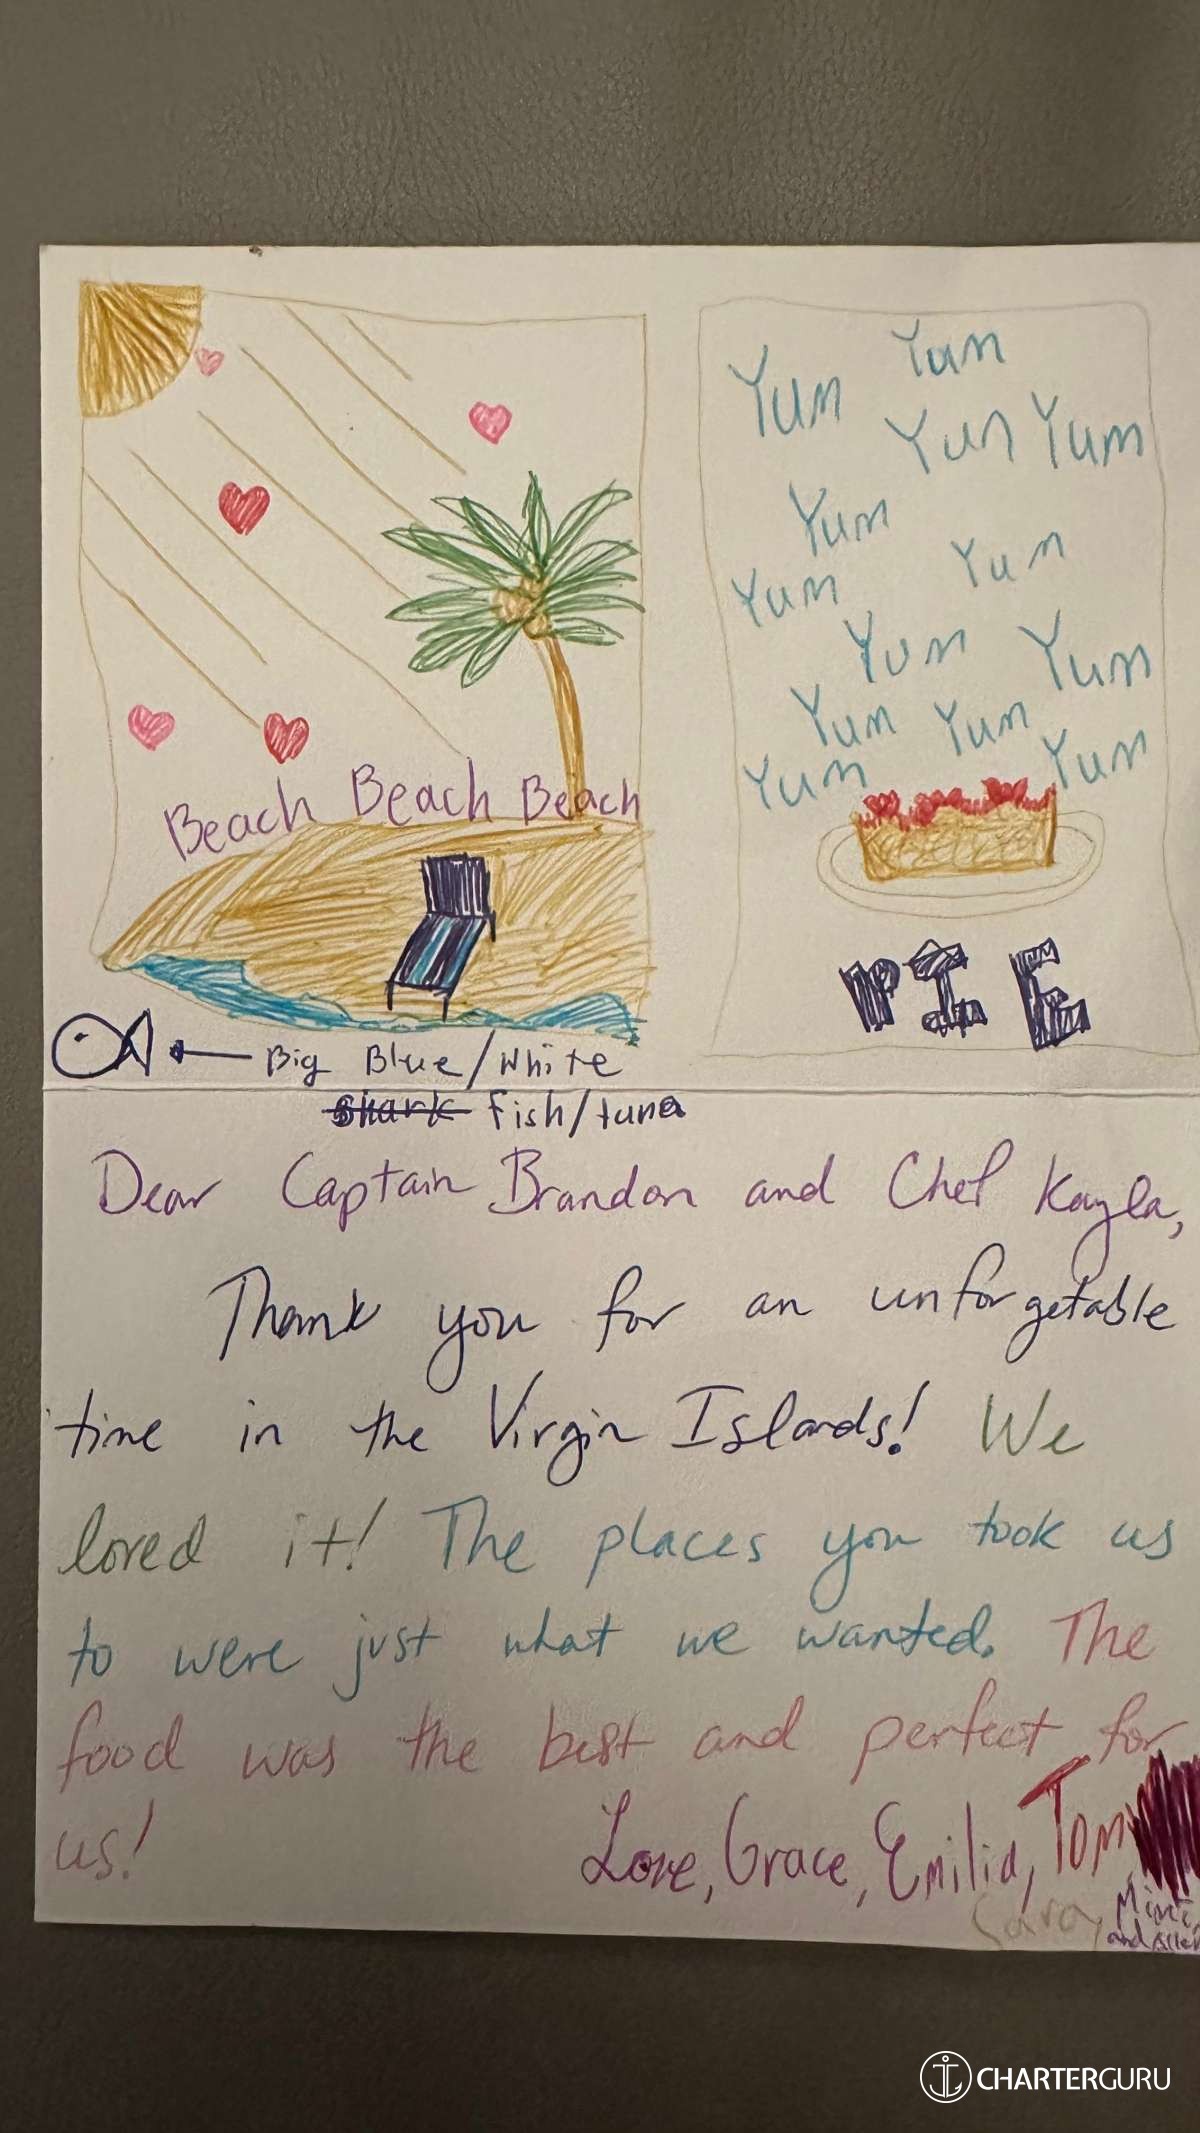 Beach Beach Beach
Big Blue/White
shark fish/tuna
Yum
Yum
Yum Yum
Yum
Yum
Yum
Yum Yum
Yum Yum
Yum Yum
PIE
Dear Captain Brandon and Chef Kayla,
Thank you for an unforgetable
time in the Virgin Islands! We
loved it! The places you took us
to were just what we wanted. The
food was the best and perfect for
us!
Love, Grace, Emilia, Tom,
Sara,
and
CHARTERGURU